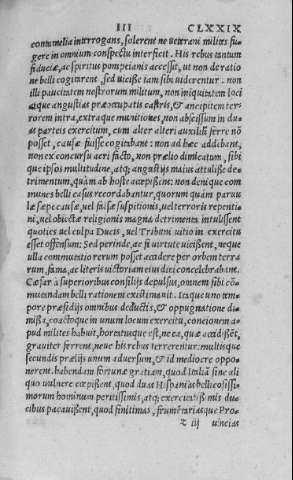 III CLXXIX
contumelia interrogans, solerent ne ueterani milites fu-
gere in omnium conspectu interficit. His rebus tantum
fiduciæ, ac spiritus pompeianis accessit, ut non de ratio
ne belli cogitarent, sed uicisse iam sibi uiderentur: non
illi paucitatem nostrorum militum, non iniquitatem loci
atque angustias præoccupatis castris, & ancipitem ter-
rorem intra, extraque munitiones, non abscissum in du-
as parteis exercitum, cum alter alteri auxiliū ferre nō
posset, causæ fuisse cogitabant: non ad hæc addebant,
non ex concursu acri facto, non prælio dimicatum, sibi
que ipsos multitudine, atq; angustijs maius attulisse de-
trimentum, quàm ab hoste accepissent: non denique com
munes belli casus recordabantur, quorum quàm paruu
læ sæpe causæ, uel falsæ suspitionis, uel terroris repenti
ni, uel obiectæ religionis magna detrimenta intulissent
quoties uel culpa Ducis, uel Tribuni uitio in exercitu
esset offensum: Sed perinde, ac si uirtute uicissent, neque
ulla commutatio rerum posset accidere per orbem terra
rum, fama, ac literis uictoriam eius diei concelebrabant.
Cæsar à superioribus consilijs depulsus, omnem sibi cō
mutandam belli rationem existimauit. Itaque uno tem-
pore præsidijs omnibus deductis, & oppugnatione di-
missa, coactoque in unum locum exercitu, concionem a-
pud milites habuit, hortatusque est, ne ea, quæ accidissēt,
grauiter ferrent, neue his rebus terrerentur: multisque
secundis prælijs unum aduersum, & id mediocre oppo-
nerent. habendam fortunæ gratiam, quod Italiā sine ali
quo uulnere cœpissent, quod duas Hispanias bellicosissi-
morum hominum peritissimis, atq; exercitatiss. mis du-
cibus pacauissent, quod finitimas, frumētariasque Pro-
z iij uincias